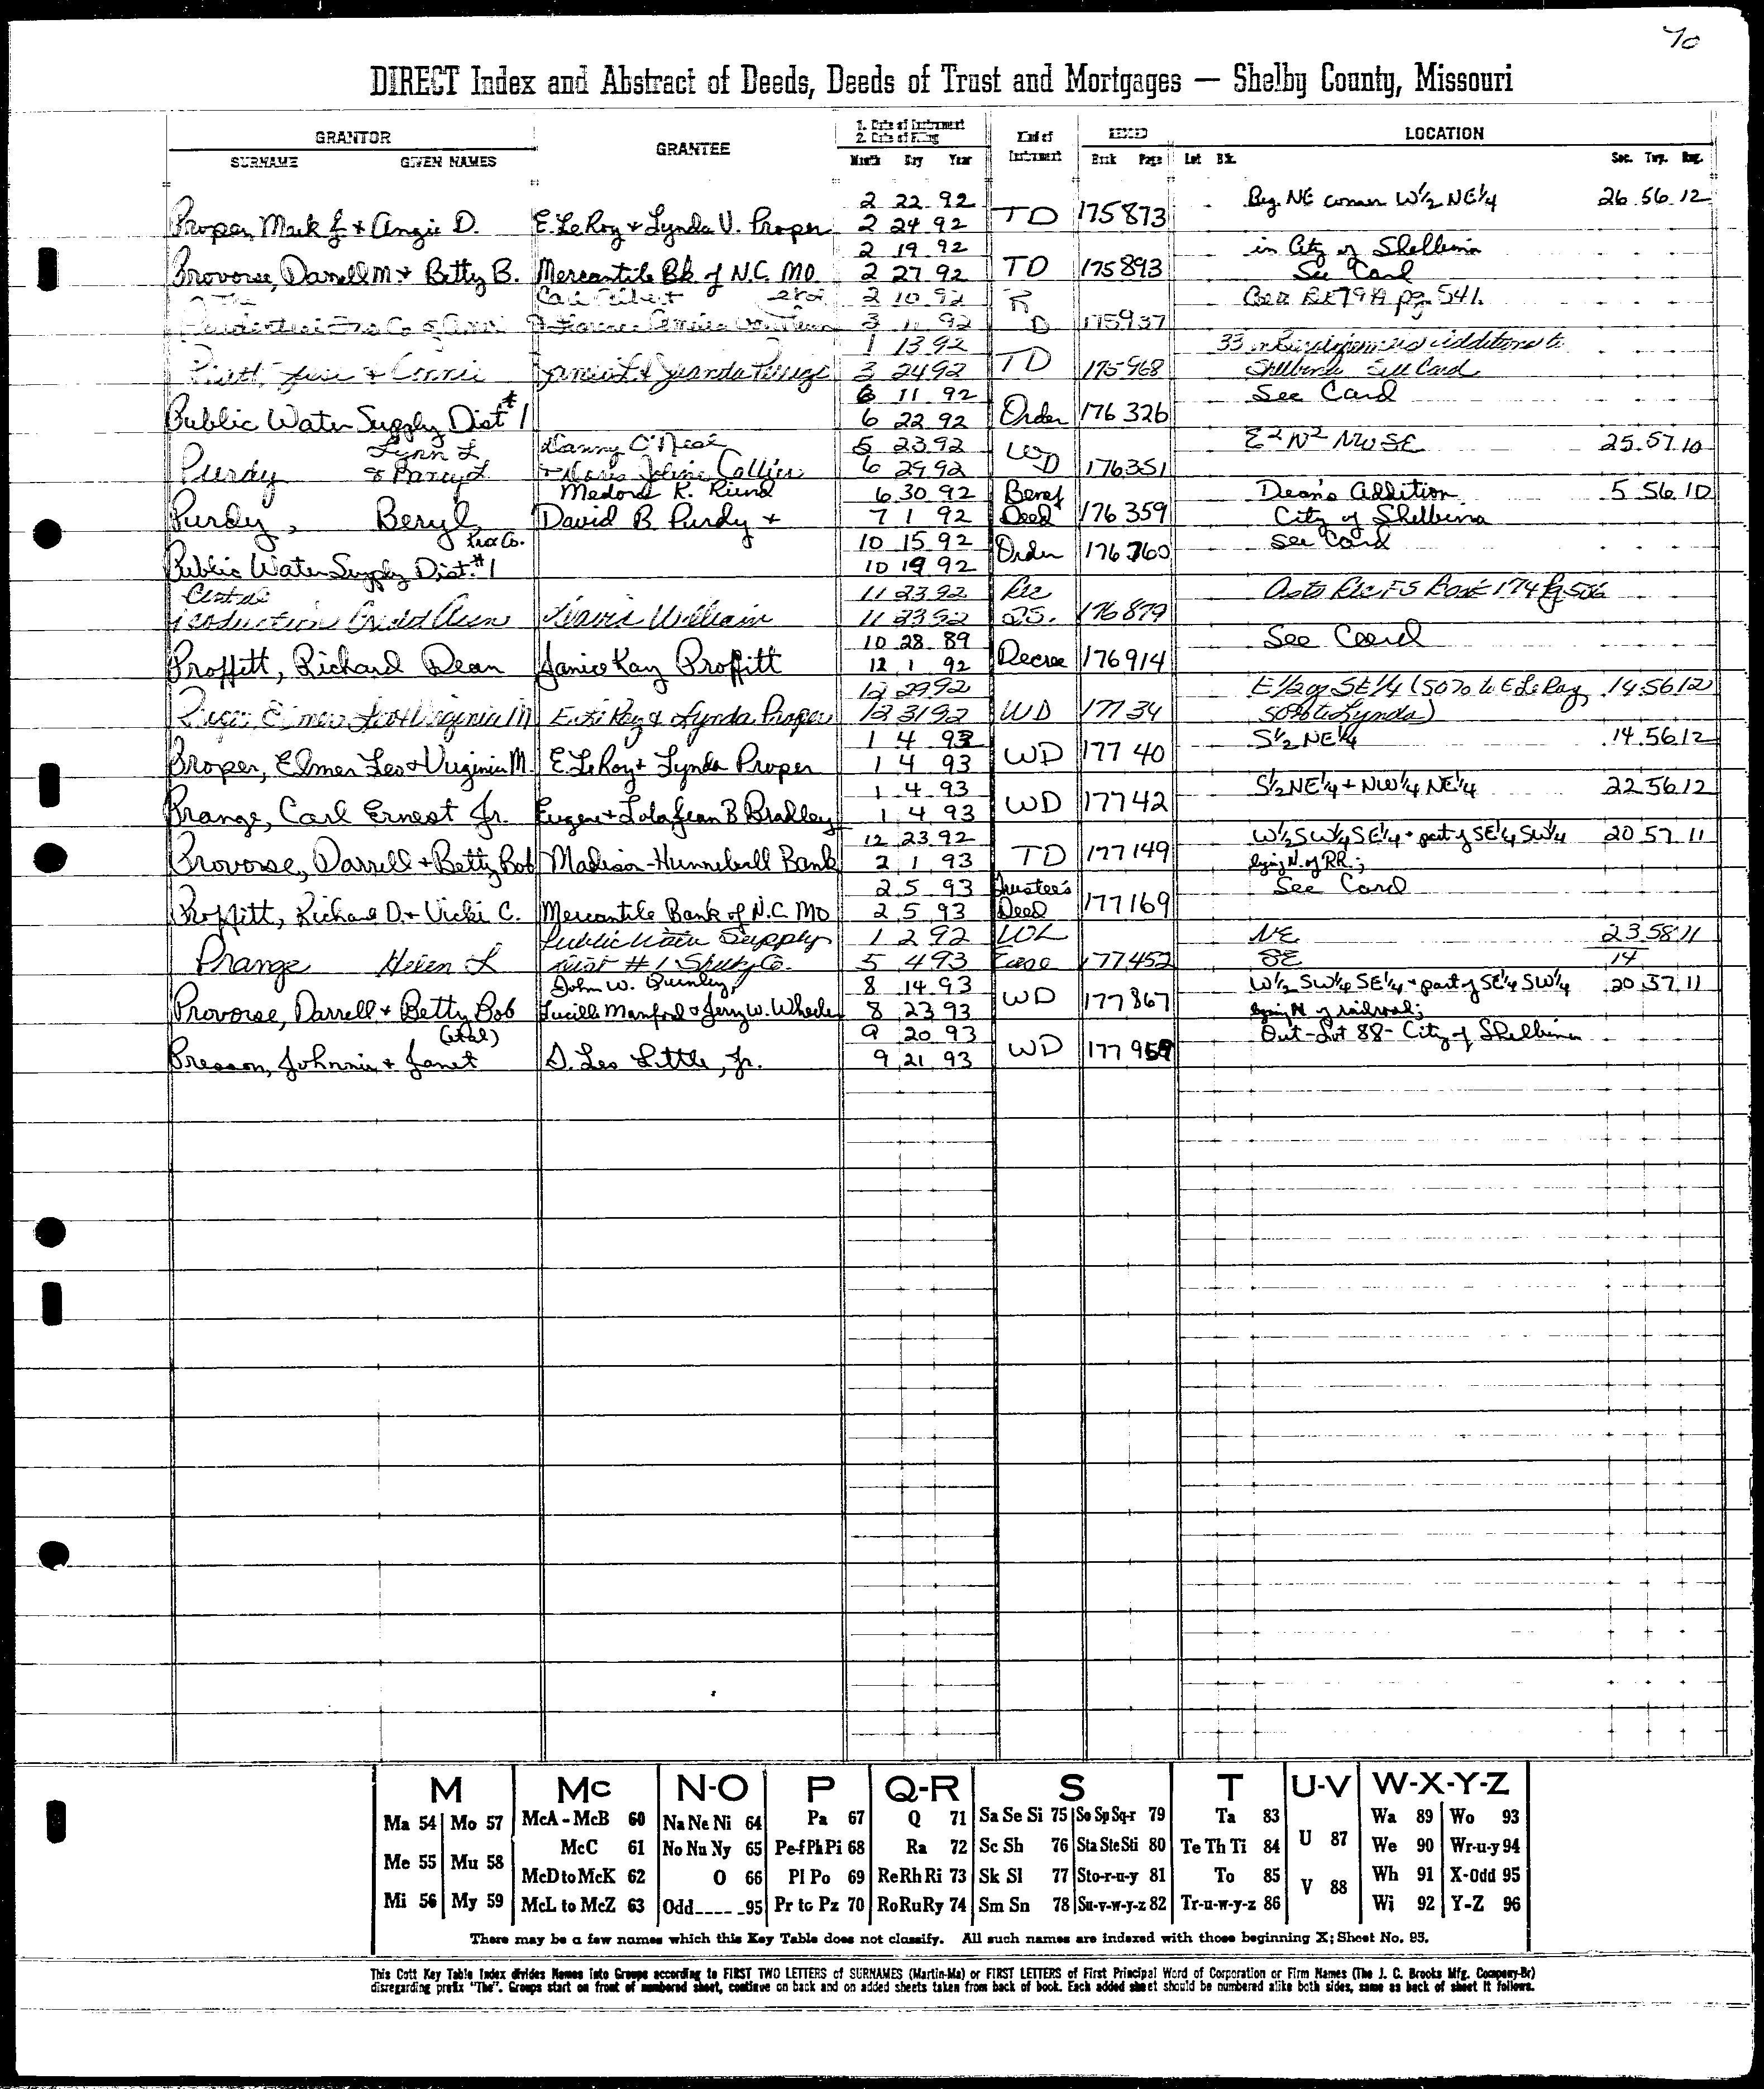 70
DIRECT Index and Abstract of Deeds, Deeds of Trust and Mortgages — Shelby County, Missouri
GRANTOR GRANTEE 1. Date of Instrument 2. Date of Filing Kind of Instrument LOCATION
SURNAME GIVEN NAMES Month Day Year Book Page Lot Blk. Sec. Twp. Rng.
2 22 92 Beg. NE corner W½ NE¼ 26 56 12
Proper, Mark & Angie D. E. LeRoy & Lynda V. Proper 2 24 92 TD 175 873
2 19 92 in City of Shelbina
Provorse, Darrell M. & Betty B. Mercantile Bk. of N.C. MO. 2 27 92 TD 175 893 See Card
The 2 10 92 R pg. 541.
3 92 D 175 937
1 13 92 33
& Connie 3 24 92 TD 175 968 Shelbina See Card
6 11 92 See Card
Public Water Supply Dist #1 6 22 92 Order 176 326
Lynn L Danny O'Neal 5 23 92 E² N² NW SE 25 57 10
Purdy & Nancy L Collier 6 29 92 WD 176 351
Medord K. 6 30 92 Benef Dean's Addition 5 56 10
Purdy, Beryl David B. Purdy + 7 1 92 Deed 176 359 City of Shelbina
Knox Co. 10 15 92 See Card
Public Water Supply Dist. #1 10 19 92 Order 176 760
Central 11 23 92 174 Pg 506
Production Credit Assn William 11 23 92 176 879
10 28 89 See Card
Proffitt, Richard Dean Janice Kay Proffitt 12 1 92 Decree 176 914
12 29 92 E½ of SE¼ (50% to E LeRoy, 14 56 12
Proper, Elmer Leo & Virginia M E. LeRoy & Lynda Proper 12 31 92 WD 177 34 50% to Lynda)
1 4 93 S½ NE¼ 14 56 12
Proper, Elmer Leo & Virginia M. E. LeRoy & Lynda Proper 1 4 93 WD 177 40
1 4 93 S½ NE¼ + NW¼ NE¼ 22 56 12
Prange, Carl Ernest Jr. Eugene & Lola Jean B Bradley 1 4 93 WD 177 42
12 23 92 W½ SW¼ SE¼ + part of SE¼ SW¼ 20 57 11
Provorse, Darrell & Betty Bob Madison-Hunnewell Bank 2 1 93 TD 177 149 lying N. of RR.;
2 5 93 Trustee's See Card
Proffitt, Richard D. & Vicki C. Mercantile Bank of N.C. MO 2 5 93 Deed 177 169
Public Water Supply 1 2 92 NE 23 58 11
Prange Helen L Dist #1 Shelby Co. 5 4 93 177 452 SE 14
John W. Quinley, 8 14 93 W½ SW¼ SE¼ + part of SE¼ SW¼ 20 57 11
Provorse, Darrell & Betty Bob Lucille Manford & Jerry W. Wheeler 8 23 93 WD 177 867 lying N of railroad;
(et al) 9 20 93 Out-Lot 88 - City of Shelbina
Presson, Johnnie & Janet D. Leo Little, Jr. 9 21 93 WD 177 959
M Mc N-O P Q-R S T U-V W-X-Y-Z
Ma 54 Mo 57 McA - McB 60 Na Ne Ni 64 Pa 67 Q 71 Sa Se Si 75 So Sp Sq-r 79 Ta 83 U 87 Wa 89 Wo 93
McC 61 No Nu Ny 65 Pe-f Ph Pi 68 Ra 72 Sc Sh 76 Sta Ste Sti 80 Te Th Ti 84 We 90 Wr-u-y 94
Me 55 Mu 58 McD to McK 62 O 66 Pl Po 69 Re Rh Ri 73 Sk Sl 77 Sto-r-u-y 81 To 85 V 88 Wh 91 X-Odd 95
Mi 56 My 59 McL to McZ 63 Odd_____95 Pr to Pz 70 Ro Ru Ry 74 Sm Sn 78 Su-v-w-y-z 82 Tr-u-w-y-z 86 Wi 92 Y-Z 96
There may be a few names which this Key Table does not classify. All such names are indexed with those beginning X; Sheet No. 95.
This Cott Key Table Index divides Names into Groups according to FIRST TWO LETTERS of SURNAMES (Martin-Ma) or FIRST LETTERS of First Principal Word of Corporation or Firm Names (The J. C. Brooks Mfg. Company-Br)
disregarding prefix "The". Groups start on front of numbered sheet, continue on back and on added sheets taken from back of book. Each added sheet should be numbered alike both sides, same as back of sheet it follows.